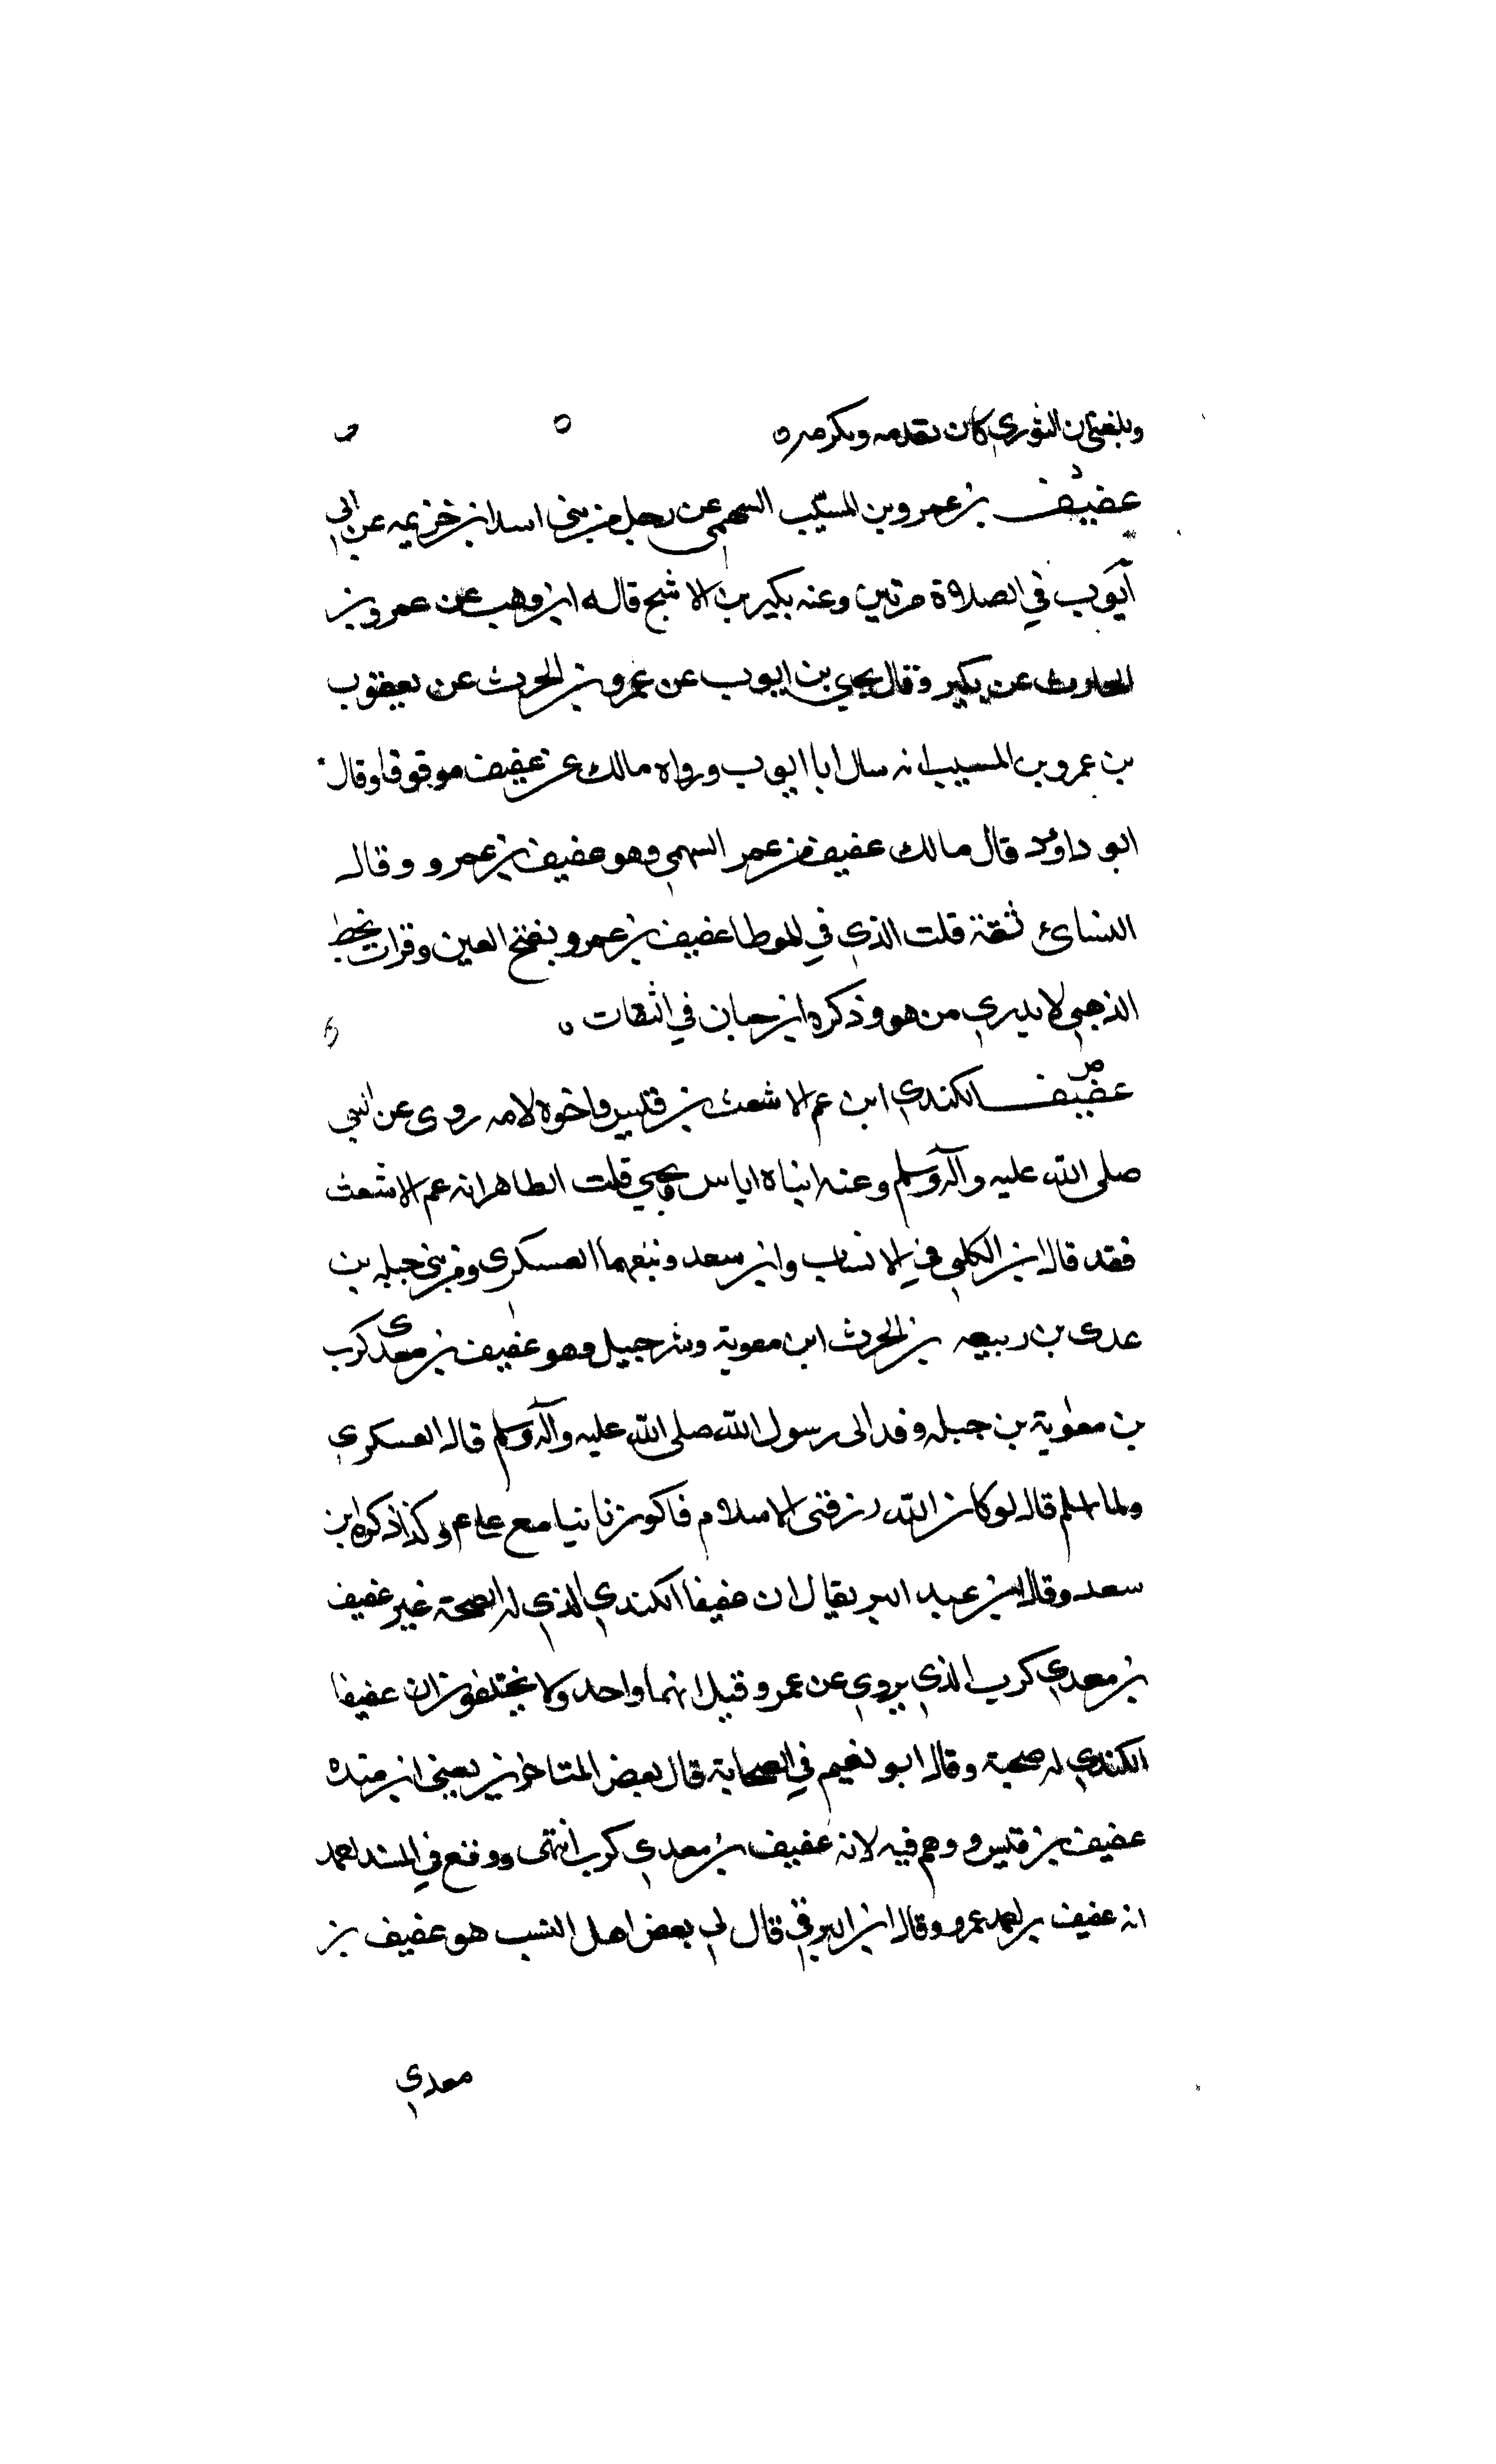 وبلغني ان الثوري كان يقدمه ويكرمه ه
د
عفيف بن عمرو بن المسيب السهمي عن رجل من بني اسد بن خزيمه عن ابي
ايوب في الصلاة مرتين وعنه بكير بن الاشج قاله ابن وهب عن عمرو بن
الحارث عن بكير وقال يحيى بن ايوب عن عمرو بن الحرث عن يعقوب
بن عمرو بن المسيب انه سال ابا ايوب ورواه مالك عن عفيف موقوفا وقال
ابو داود قال مالك عفيف بن عمر السهمي وهو عفيف بن عمرو وقال
النسائ ثقة قلت الذي في الموطا عفيف بن عمرو بفتح العين وقرات بخط
الذهبي لا يدري من هو وذكره ابن حبان في الثقات ه
ص
عفيف الكندي ابن عم الاشعث بن قيس واخوه لامه روى عن النبي
صلى الله عليه وآله وسلم وعنه ابناه اياس ويحيي قلت الظاهر انه عم الاشعث
فقد قال ابن الكلبي في الانساب وابن سعد وتبعهما العسكري ومن بني جبله بن
عدي بن ربيعه بن الحرث ابن معوية وشرحبيل وهو عفيف بن معدي كرب
بن معوية بن جبله وفد الى رسول الله صلى الله عليه وآله وسلم قال العسكري
ولما اسلم قال لو كان الله رزقني الاسلام فاكون ثانيا مع علي ع م وكذا ذكره ابن
سعد وقال ابن عبد البر يقال ان عفيفا الكندي الذي له الصحبة غير عفيف
بن معدي كرب الذي يروي عن عمر وقيل انهما واحد ولا يختلفون ان عفيفا
الكندي له صحبة وقال ابو نعيم في الصحابة قال بعض المتاخرين يعني ابن منده
عفيف بن قيس ووهم فيه لانه عفيف بن معدي كرب انتهى ووقع في المسند لاحمد
انه عفيف بن عمرو وقال ابن البرقي قال لي بعض اهل النسب هو عفيف بن
معدي